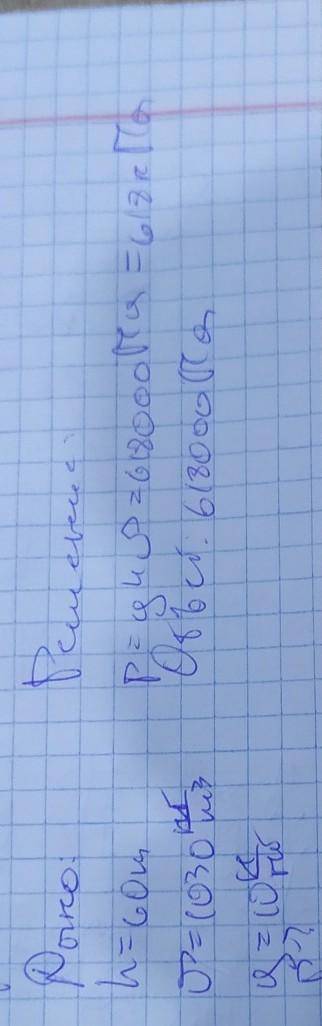 Дано:
h = 60м
ρ = 1030 кг/м³
g = 10 Н/кг
P-?
Решение:
P = ghρ = 618000Па = 618кПа
Ответ: 618000Па